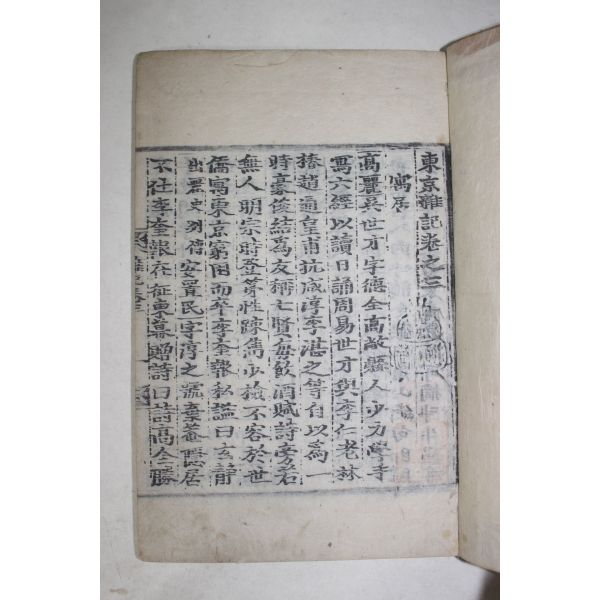 東京雜記卷之三
寓居
高麗吳世才字德全高敞縣人少力學手
寫六經以讀日誦周易世才與李仁老林
椿趙通皇甫抗咸淳李湛之等自以爲一
時豪俊結爲友稱七賢每飮酒賦詩旁若
無人明宗時登第性踈雋少檢不容於世
僑寓東京窮困而卒李奎報私謚曰玄靜
出麗史列傳 安置民字淳之號棄菴隱居
不仕李奎報在征東幕贈詩曰詩高全勝